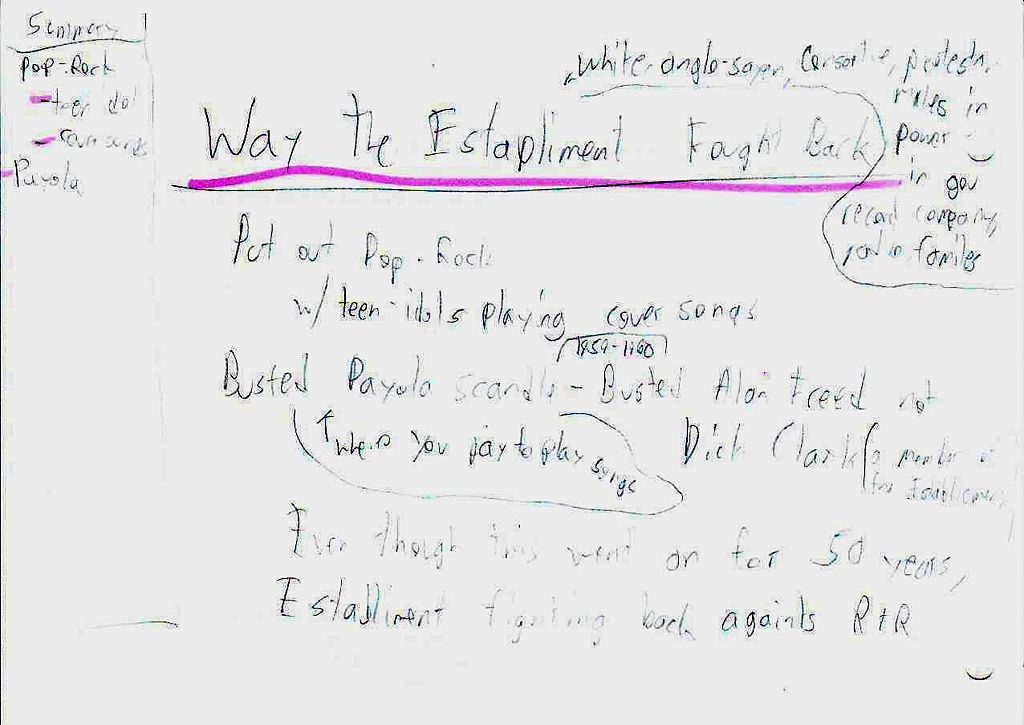 Summary
Pop-Rock
- teen idol
- cover songs
Payola
white anglo-saxon,
rules in
power -
in gov
record company,
radio families
Way The Estapliment Fought Back
Put out Pop-Rock
w/ teen-idols playing cover songs
Busted Payola scandle - Busted Alan Freed not
Dick Clark
where you pay to play songs
Even though this went on for 50 years,
Establiment fighting back againts R+R